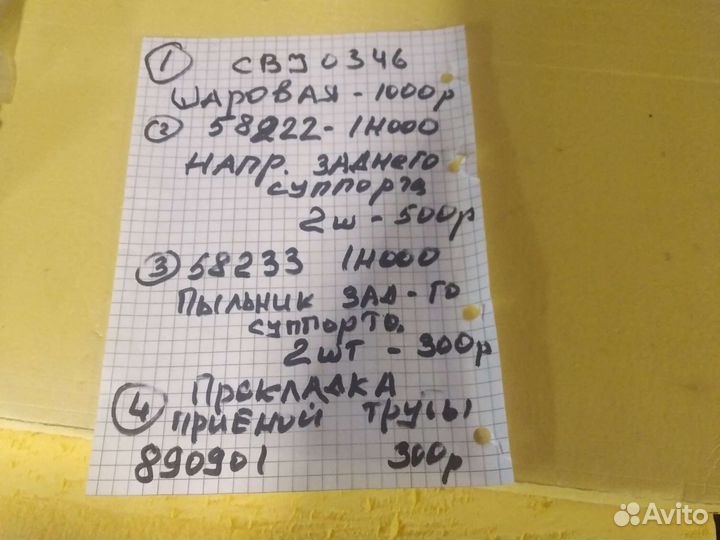 1 СВJ 0346
ШАРОВАЯ - 1000р
2 58222-1H000
НАПР. ЗАДНЕГО
СУППОРТА
2ш - 500р
3 58233 1H000
ПЫЛЬНИК ЗАД-ГО
СУППОРТО.
2 ШТ - 300р
4 ПРОКЛАДКА
ПРИЁНОЙ ТРУБЫ
890901 300р
Avito